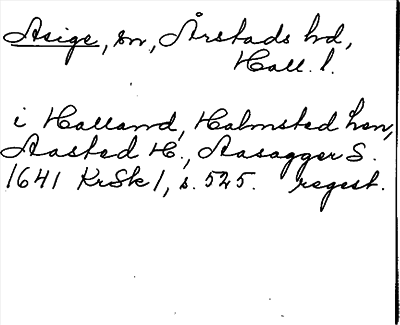 Asige, sn, Årstads hd,
Hall. l.
i Halland, Halmsted Len,
Aasted H., Aasagger S.
1641 KrSk 1, s. 525. regest.